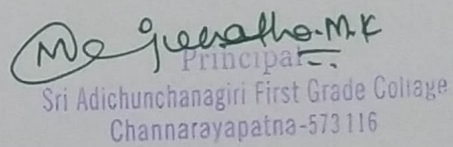 Manjunatha.M.K
Principal
Sri Adichunchanagiri First Grade Collage
Channarayapatna-573116